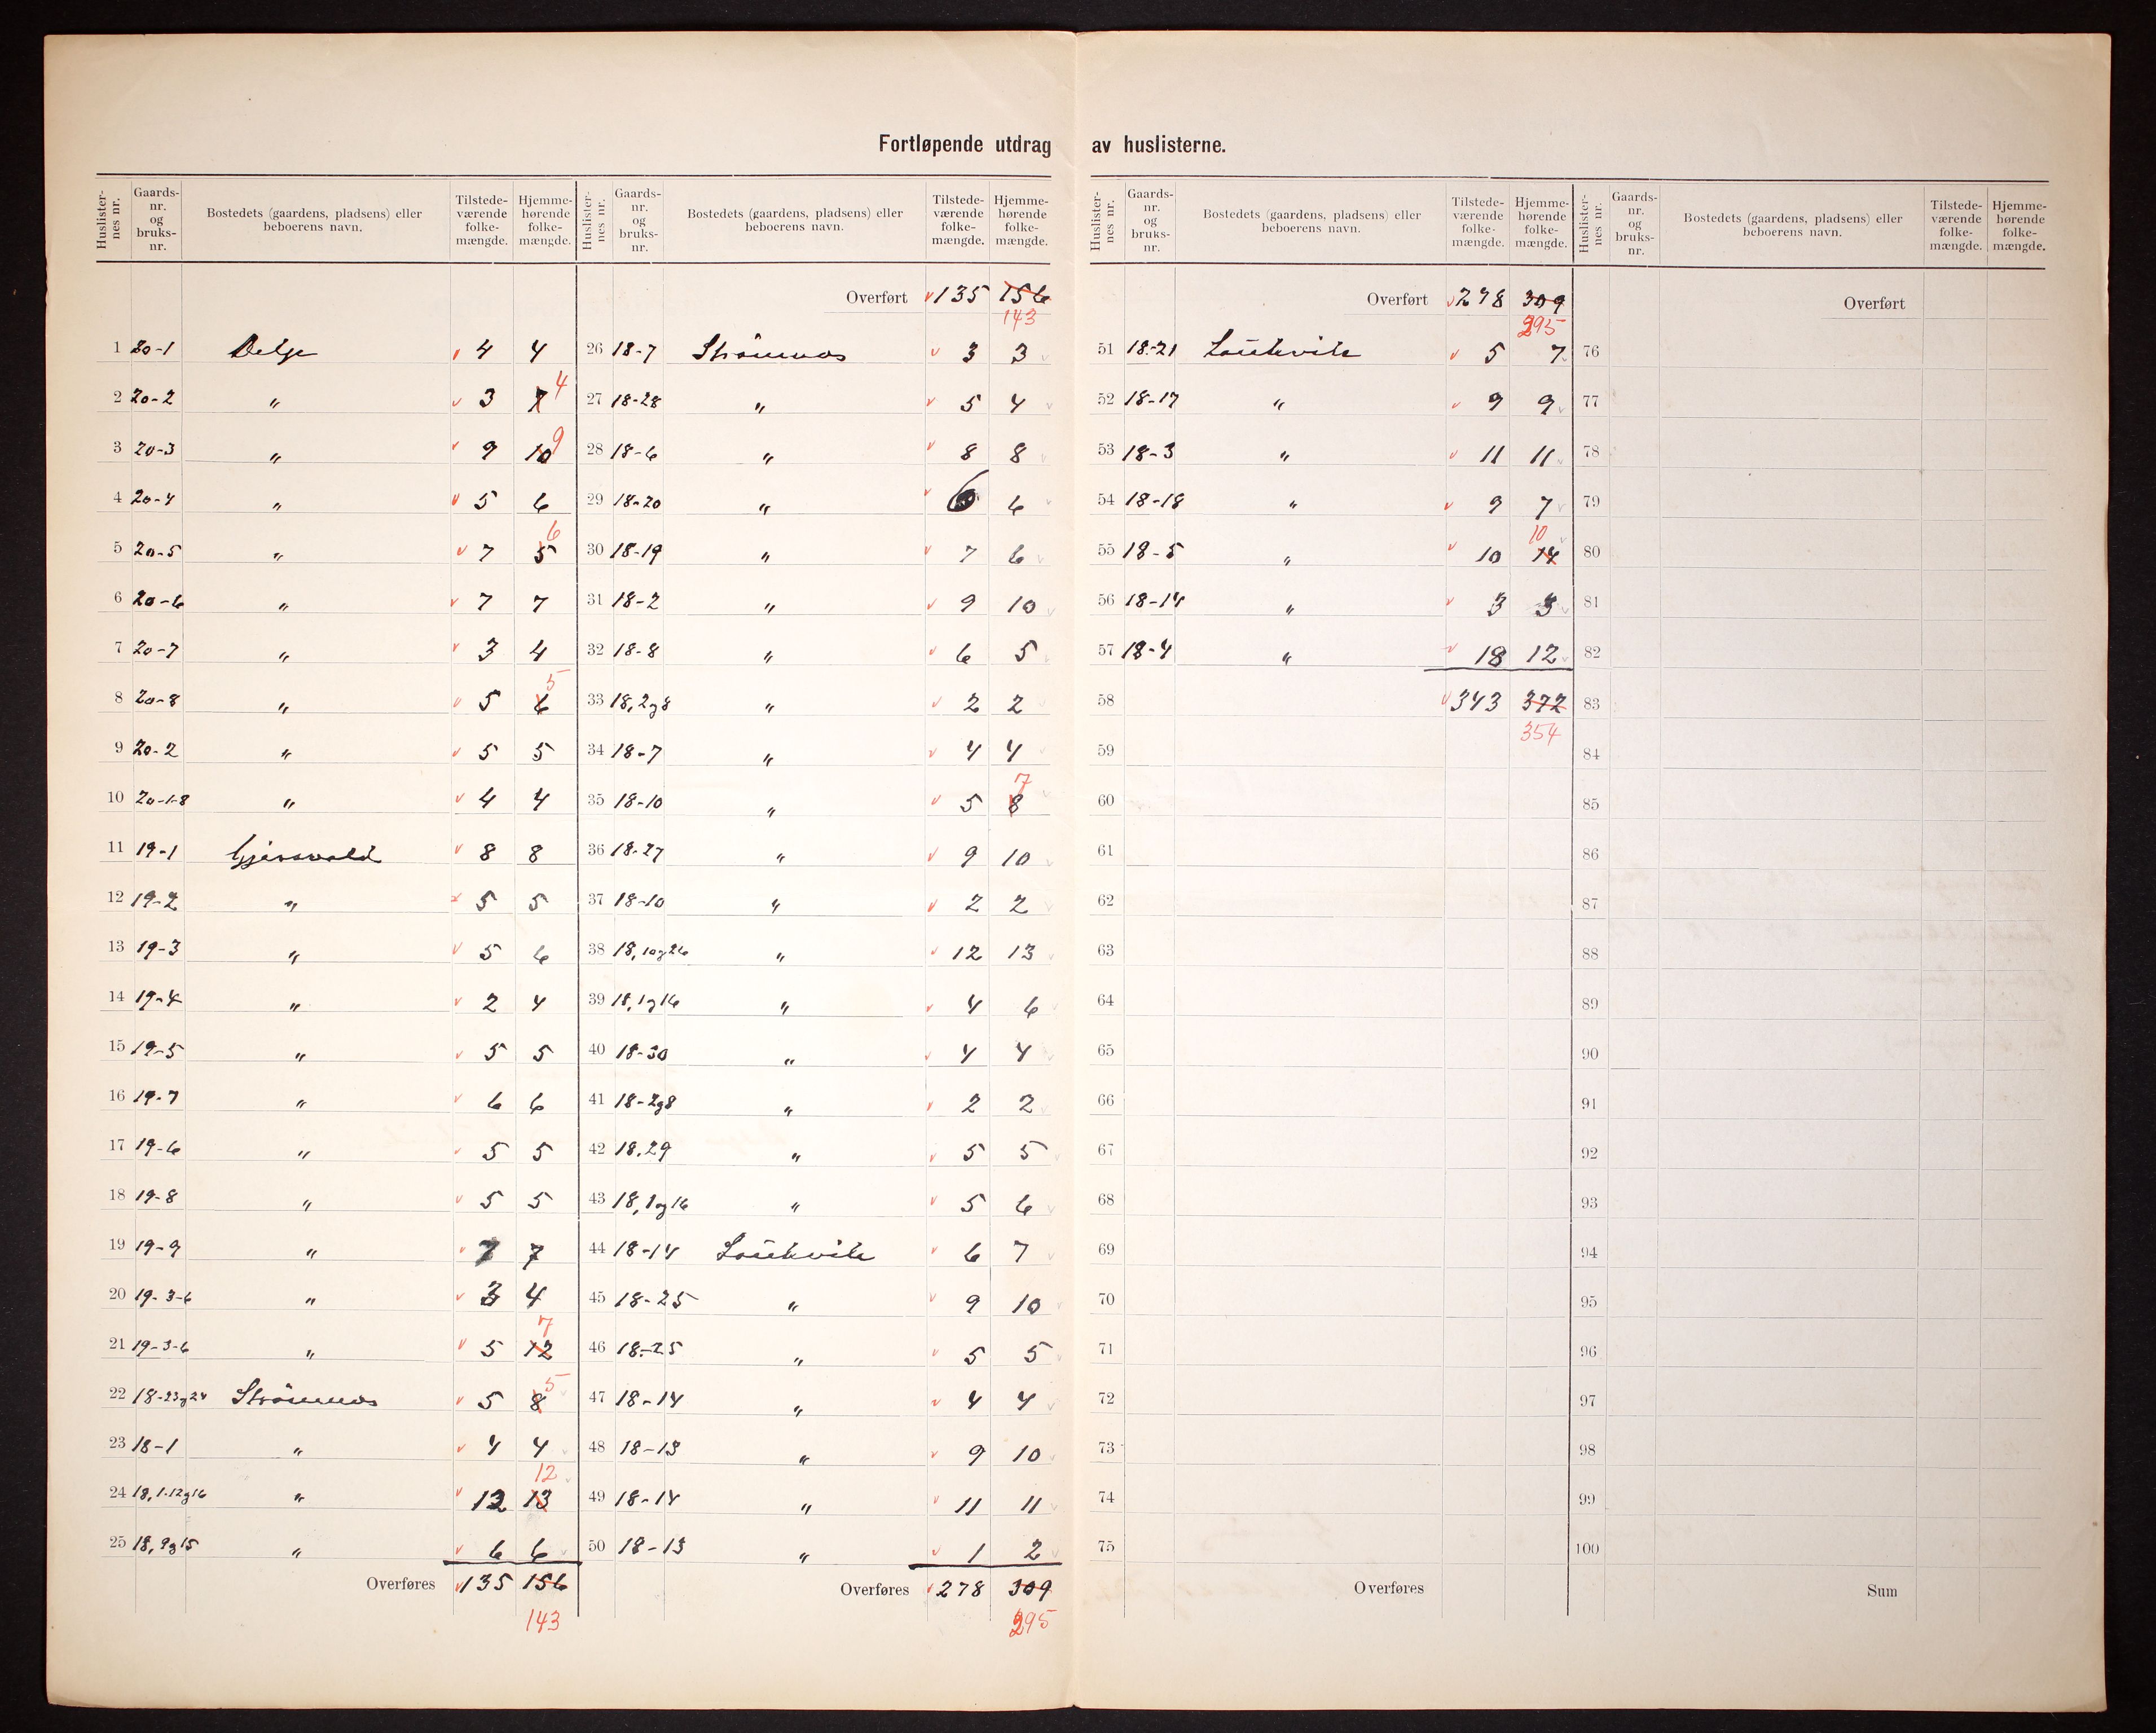 Fortløpende utdrag av huslisterne.
Huslisternes nr. Gaards-nr. og bruks-nr. Bostedets (gaardens, pladsens) eller beboerens navn. Tilstede-værende folke-mængde. Hjemme-hørende folke-mængde.
1 20-1 Delge 4 4
2 20-2 " 3 7 4
3 20-3 " 9 10 9
4 20-4 " 5 6
5 20-5 " 7 5 6
6 20-6 " 7 7
7 20-7 " 3 4
8 20-8 " 5 6 5
9 20-2 " 5 5
10 20-1-8 " 4 4
11 19-1 Gjersvold 8 8
12 19-2 " 5 5
13 19-3 " 5 6
14 19-4 " 2 4
15 19-5 " 5 5
16 19-7 " 6 6
17 19-6 " 5 5
18 19-8 " 5 5
19 19-9 " 7 7
20 19-3-6 " 3 4
21 19-3-6 " 5 12 7
22 18-23og24 Strömmos 5 8 5
23 18-1 " 4 4
24 18,1-12og16 " 12 13 12
25 18,9og15 " 6 6
Overføres 135 156
143
Huslisternes nr. Gaards-nr. og bruks-nr. Bostedets (gaardens, pladsens) eller beboerens navn. Tilstede-værende folke-mængde. Hjemme-hørende folke-mængde.
Overført 135 156
143
26 18-7 Strömmos 3 3
27 18-28 " 5 4
28 18-6 " 8 8
29 18-20 " 6 6
30 18-19 " 7 6
31 18-2 " 9 10
32 18-8 " 6 5
33 18,2og8 " 2 2
34 18-7 " 4 4
35 18-10 " 5 8 7
36 18-27 " 9 10
37 18-10 " 2 2
38 18,10og26 " 12 13
39 18,1og16 " 4 6
40 18-30 " 4 4
41 18-2og8 " 2 2
42 18.29 " 5 5
43 18,1og16 " 5 6
44 18-14 Laukvik 6 7
45 18-25 " 9 10
46 18-25 " 5 5
47 18-14 " 4 4
48 18-13 " 9 10
49 18-14 " 11 11
50 18-13 " 1 2
Overføres 278 309
295
Huslisternes nr. Gaards-nr. og bruks-nr. Bostedets (gaardens, pladsens) eller beboerens navn. Tilstede-værende folke-mængde. Hjemme-hørende folke-mængde.
Overført 278 309
295
51 18-21 Laukvik 5 7
52 18-17 " 9 9
53 18-3 " 11 11
54 18-18 " 9 7
55 18-5 " 10 14 10
56 18-14 " 3 3
57 18-4 " 18 12
58 343 372
354
59
60
61
62
63
64
65
66
67
68
69
70
71
72
73
74
75
Overføres
Huslisternes nr. Gaards-nr. og bruks-nr. Bostedets (gaardens, pladsens) eller beboerens navn. Tilstede-værende folke-mængde. Hjemme-hørende folke-mængde.
Overført
76
77
78
79
80
81
82
83
84
85
86
87
88
89
90
91
92
93
94
95
96
97
98
99
100
Sum